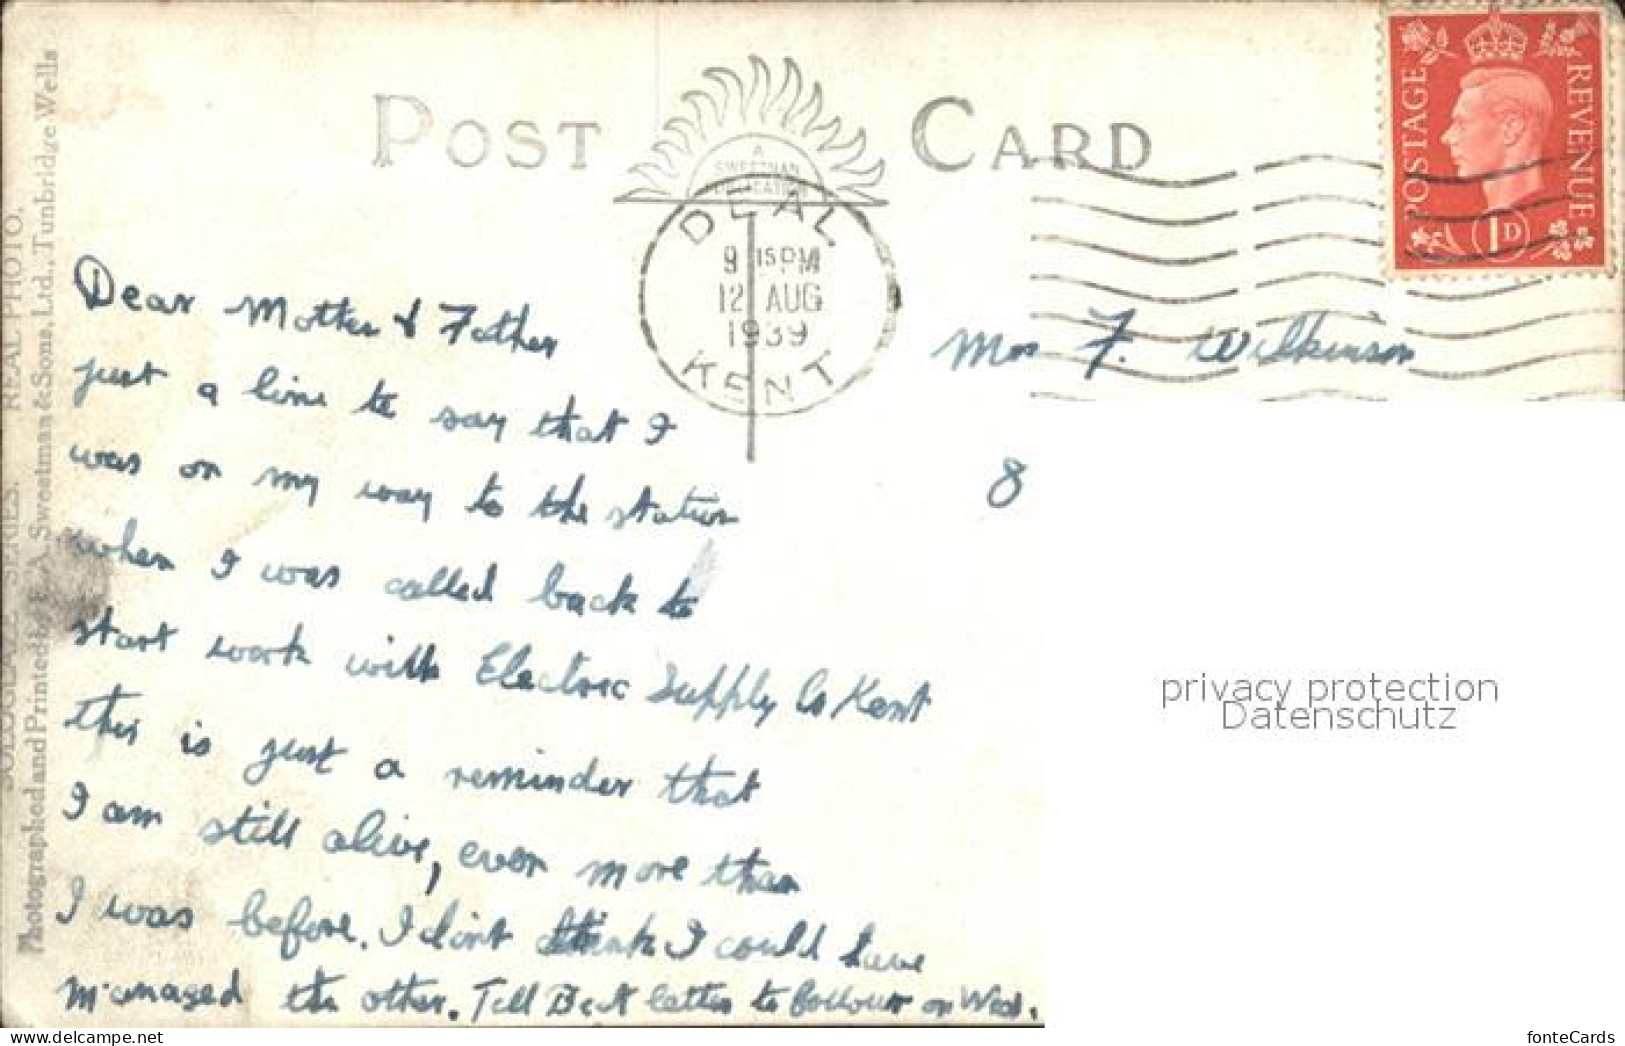 POST CARD
A
SWEETMAN
PUBLICATION
DEAL
9 15 PM
12 AUG
1939
KENT
POSTAGE REVENUE
1D
Dear Mother & Father
just a line to say that I
was on my way to the station
when I was called back to
start work with Electric Supply Co Kent
this is just a reminder that
I am still alive, even more than
I was before. I don't think I could have
managed the other. Tell Bert letter to follow on Wed.
Mrs F. Wilkinson
8
SOLOGLAZE SERIES. REAL PHOTO.
Photographed and Printed by A. Sweetman & Sons, Ltd., Tunbridge Wells
privacy protection
Datenschutz
fonteCards